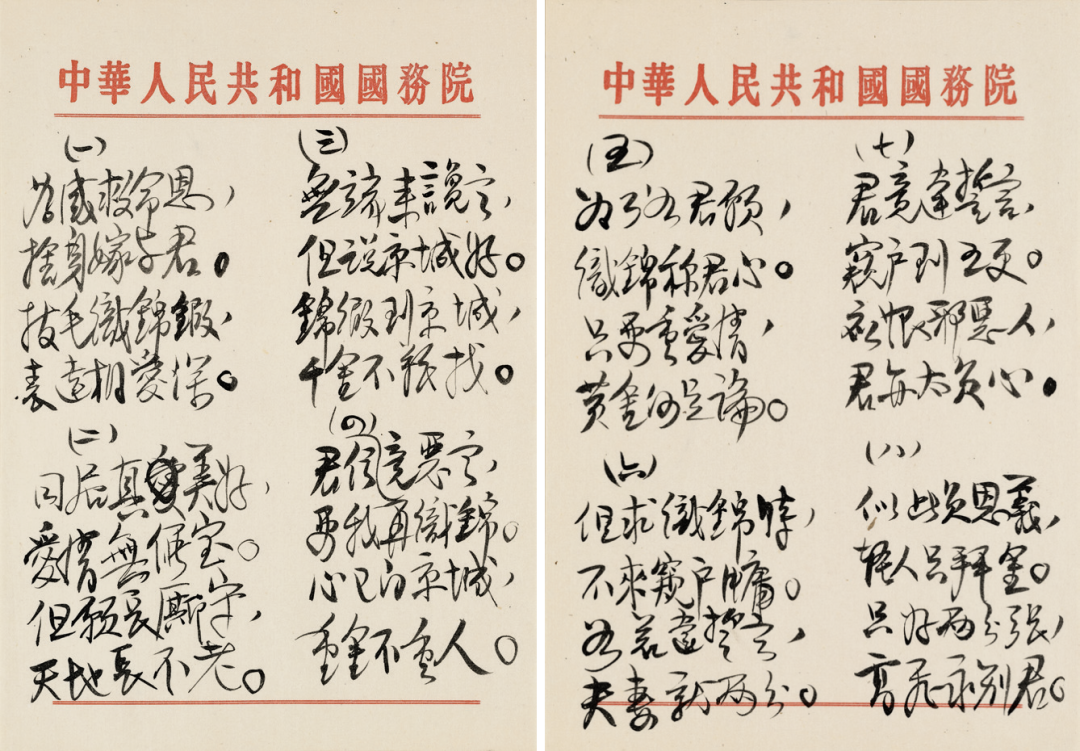 中華人民共和國國務院
(一)
為感救命恩，
捨身嫁与君。
拔毛織錦緞，
表達相愛深。
(二)
同居真美好，
愛情無價宝。
但願長廝守，
天地長不老。
(三)
無端来言，
但说京城好。
錦緞到京城，
千金不難找。
(四)
君信竟惡言，
要我再織錦。
心已向京城，
重金不重人。
中華人民共和國國務院
(五)
为了君願，
織錦称君心。
只要重愛情，
黄金何足論。
(六)
但求織錦時，
不來窺户牖。
若違誓言，
夫妻就两分。
(七)
君竟違誓言，
窺户到五更。
恨邪惡人，
君毋太负心。
(八)
似此负恩義，
人只拜金。
只好两分張，
高飛永别君。